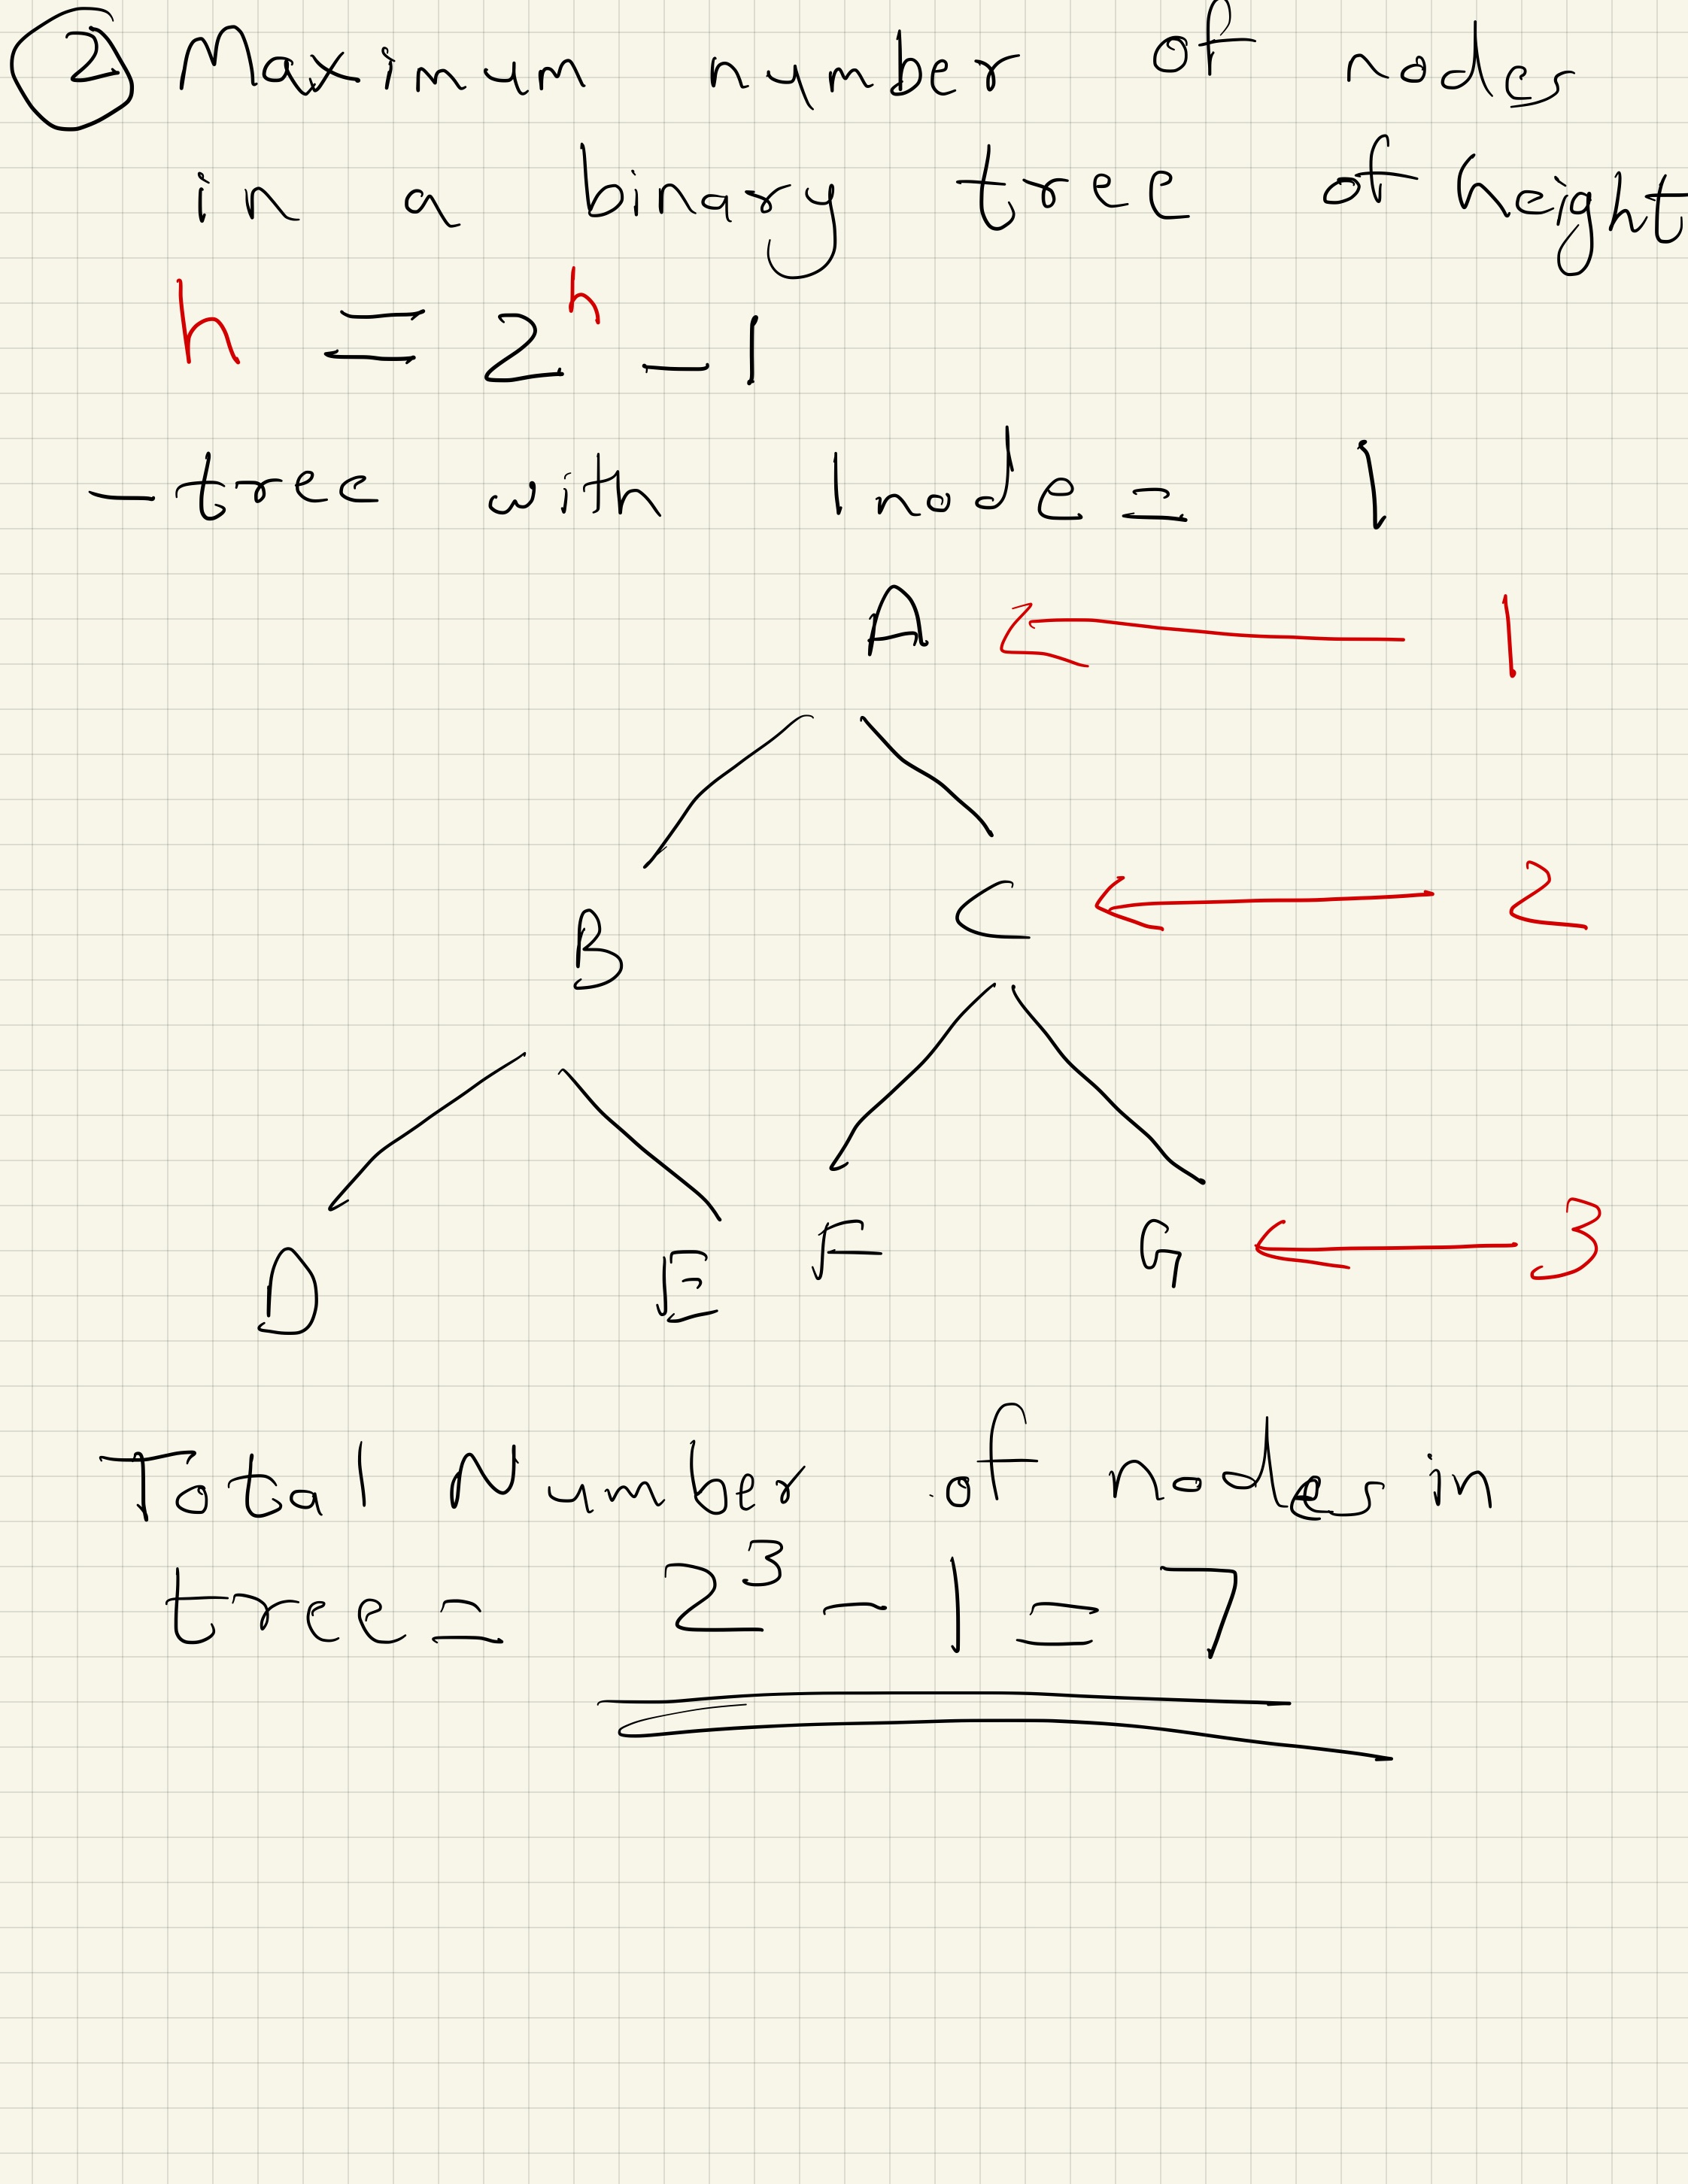 ② Maximum number of nodes
in a binary tree of height
h = 2^h - 1
- tree with 1node = 1
A 1
B C 2
D E F G 3
Total Number of nodes in
tree = 2^3 - 1 = 7